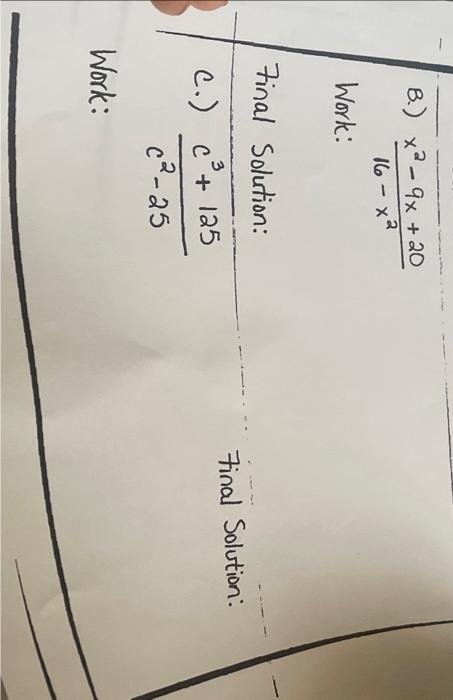 B.) x² - 9x + 20
16 - x²
Work:
Final Solution:
C.) c³ + 125
c² - 25
Work:
Final Solution: